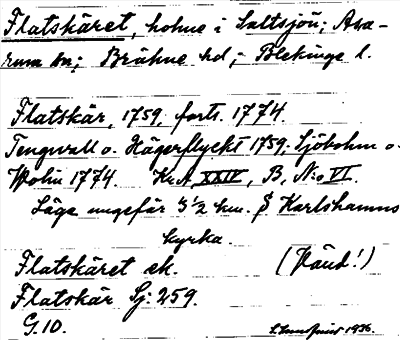 Flatskäret, holme i Saltsjön; Asa-
rum sn; Bräkne hd; Blekinge l.
Flatskär, 1759 forts. 1774.
Tengwall o. Hägerflyckt 1759; Sjöbohm o.
Wolin 1774. KrA, XXIV, B, N:o VI.
Läge ungefär 3 1/2 km. S Karlshamns
kyrka.
Flatskäret ek. (Vänd!)
Flatskär Sj: 259.
G. 10. 1936.